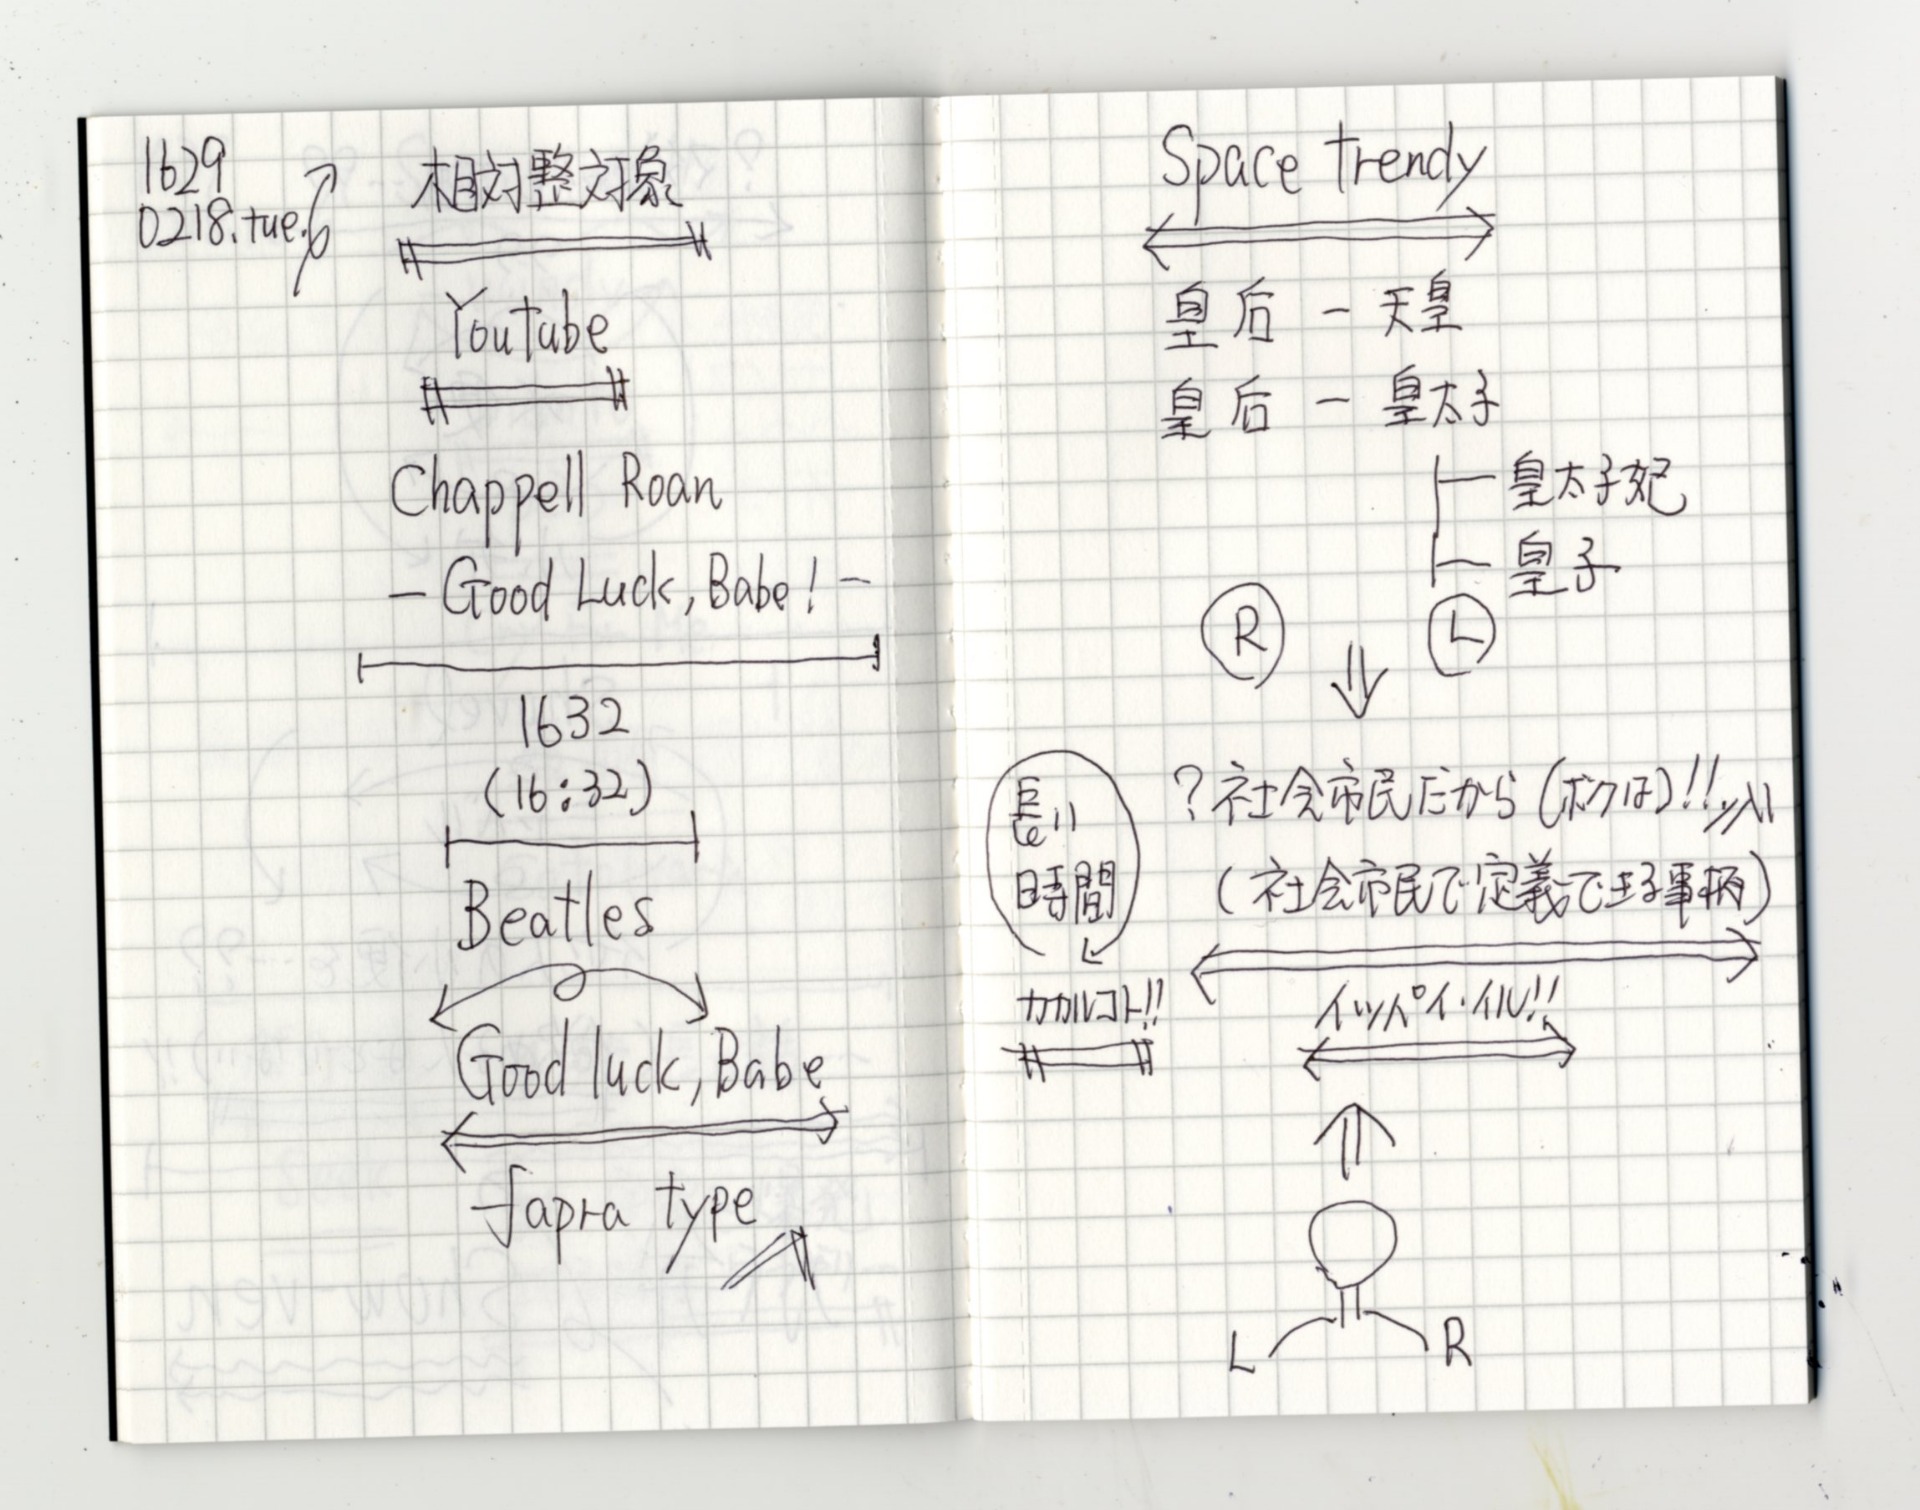 1629
0218.tue.
相対整対象
Youtube
Chappell Roan
– Good Luck, Babe! –
1632
(16:32)
Beatles
Good luck, Babe
fapra type
Space trendy
皇后 – 天皇
皇后 – 皇太子
皇太子妃
皇子
R
L
?社会市民だから(ボクは)!!
(社会市民で定義できる事柄)
長い
時間
カカルコト!!
イッパイ・イル!!
L
R